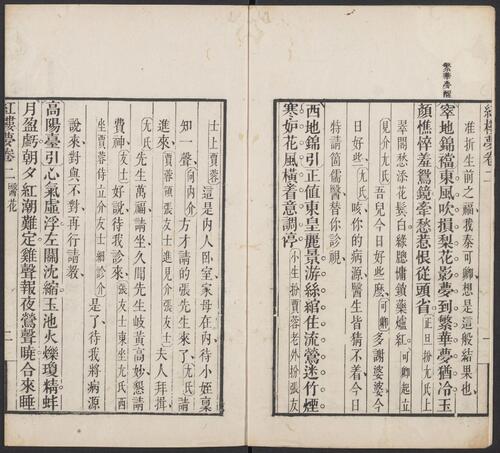 繁華夢醒
紅樓夢卷二 一
准折生前之福我秦可卿想是這般結果也
宰地錦襠東風吹損梨花影夢到繁華夢猶冷玉
顏憔悴羞鸞鏡牽愁惹恨從頭省正旦扮尤氏上
翠閣愁添花鬂白綠牕慵鎖藥爐紅可卿起立
見介尤氏吾兒今日好些麽可卿多謝婆婆今
日好些尤氏咳你的病源醫生皆猜不着今日
特請箇儒醫替你診視
西地錦引正值東皇麗景游絲綰住流鶯迷竹煙
寒妬花風橫着意調停小生扮賈蓉老外扮張友
士上賈蓉這是内人卧室家母在内待小姪稟
知一聲向内介方才請的張先生來了尤氏請
進來賈蓉領張友士進見介張友士夫人拜揖
尤氏先生萬福請坐久聞先生岐黃高妙懇請
費神友士好說待我診來張友士東坐尤氏西
坐賈蓉侍立介友士細診介是了待我將病源
說來對與不對再行請教
高陽臺引心氣虛浮左關沈縮玉池火爍瓊精蚌
月盈虧朝夕紅潮難定雞聲報夜鶯聲曉合來睡
紅樓夢卷二 醫花 二